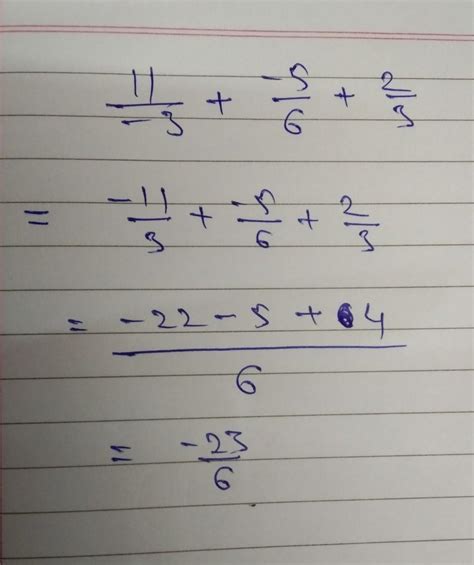 11/-3 + -5/6 + 2/3
= -11/3 + -5/6 + 2/3
= -22 - 5 + 4/6
= -23/6